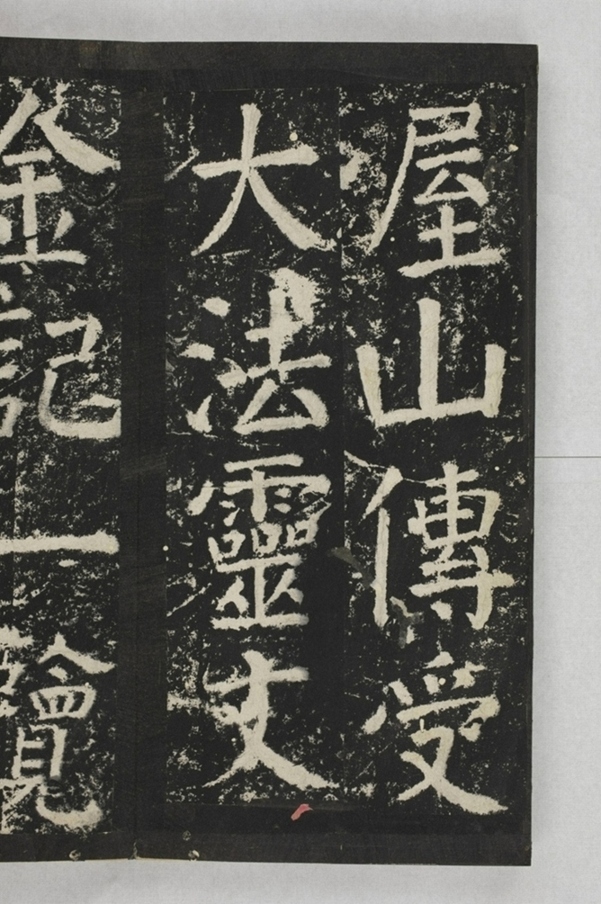 屋山傳受
大法靈文
金記一覽